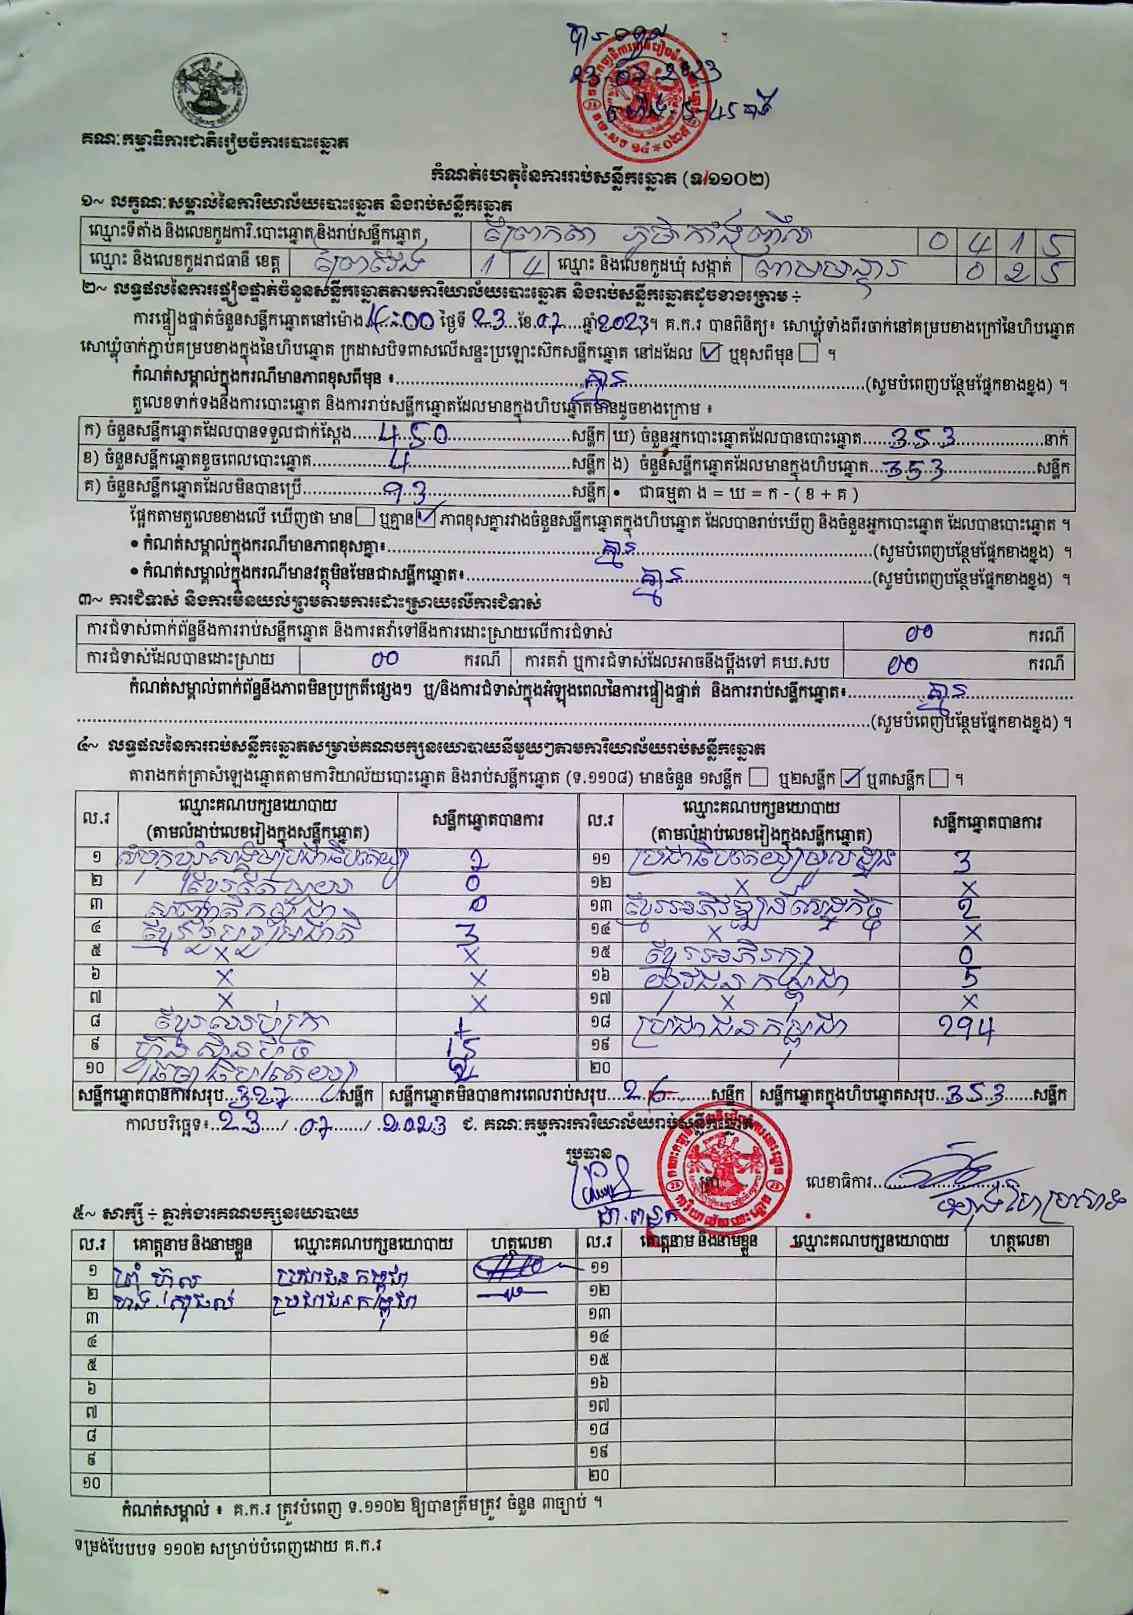 គណៈកម្មាធិការជាតិរៀបចំការបោះឆ្នោត
កំណត់ហេតុនៃការរាប់សន្លឹកឆ្នោត (ទ.១១០២)
១~ លក្ខណៈសម្គាល់នៃការិយាល័យបោះឆ្នោត និងរាប់សន្លឹកឆ្នោត
ឈ្មោះទីតាំង និងលេខកូដការិ.បោះឆ្នោត និងរាប់សន្លឹកឆ្នោត 0 4 1 5
ឈ្មោះ និងលេខកូដរាជធានី ខេត្ត ព្រៃវែង 1 4 ឈ្មោះ និងលេខកូដឃុំ សង្កាត់ 0 2 5
២~ លទ្ធផលនៃការផ្ទៀងផ្ទាត់ចំនួនសន្លឹកឆ្នោតតាមការិយាល័យបោះឆ្នោត និងរាប់សន្លឹកឆ្នោតដូចខាងក្រោម ៖
ការផ្ទៀងផ្ទាត់ចំនួនសន្លឹកឆ្នោតនៅម៉ោង 4:00 ថ្ងៃទី 23 ខែ 07 ឆ្នាំ2023។ គ.ក.រ បានពិនិត្យ៖ សោឃ្លុំទាំងពីរចាក់នៅគម្របខាងក្រៅនៃហិបឆ្នោត
សោឃ្លុំចាក់ភ្ជាប់គម្របខាងក្នុងនៃហិបឆ្នោត ក្រដាសបិទពាសលើសន្ទះប្រឡោះស៊កសន្លឹកឆ្នោត នៅដដែល ☑ ឬខុសពីមុន ☐ ។
កំណត់សម្គាល់ក្នុងករណីមានភាពខុសពីមុន ៖ គ្មាន (សូមបំពេញបន្ថែមផ្នែកខាងខ្នង) ។
តួលេខទាក់ទងនឹងការបោះឆ្នោត និងការរាប់សន្លឹកឆ្នោតដែលមានក្នុងហិបឆ្នោតមានដូចខាងក្រោម ៖
ក) ចំនួនសន្លឹកឆ្នោតដែលបានទទួលជាក់ស្តែង 450 សន្លឹក ឃ) ចំនួនអ្នកបោះឆ្នោតដែលបានបោះឆ្នោត 353 នាក់
ខ) ចំនួនសន្លឹកឆ្នោតខូចពេលបោះឆ្នោត 4 សន្លឹក ង) ចំនួនសន្លឹកឆ្នោតដែលមានក្នុងហិបឆ្នោត 353 សន្លឹក
គ) ចំនួនសន្លឹកឆ្នោតដែលមិនបានប្រើ 93 សន្លឹក • ជាធម្មតា ង = ឃ = ក - ( ខ + គ )
ផ្អែកតាមតួលេខខាងលើ ឃើញថា មាន ☐ ឬគ្មាន ☑ ភាពខុសគ្នារវាងចំនួនសន្លឹកឆ្នោតក្នុងហិបឆ្នោត ដែលបានរាប់ឃើញ និងចំនួនអ្នកបោះឆ្នោត ដែលបានបោះឆ្នោត ។
• កំណត់សម្គាល់ក្នុងករណីមានភាពខុសគ្នា៖ គ្មាន (សូមបំពេញបន្ថែមផ្នែកខាងខ្នង) ។
• កំណត់សម្គាល់ក្នុងករណីមានវត្ថុមិនមែនជាសន្លឹកឆ្នោត៖ គ្មាន (សូមបំពេញបន្ថែមផ្នែកខាងខ្នង) ។
៣~ ការជំទាស់ និងការមិនយល់ព្រមតាមការដោះស្រាយលើការជំទាស់
ការជំទាស់ពាក់ព័ន្ធនឹងការរាប់សន្លឹកឆ្នោត និងការតវ៉ាទៅនឹងការដោះស្រាយលើការជំទាស់ 00 ករណី
ការជំទាស់ដែលបានដោះស្រាយ 00 ករណី ការតវ៉ា ឬការជំទាស់ដែលអាចនឹងប្តឹងទៅ គឃ.សប 00 ករណី
កំណត់សម្គាល់ពាក់ព័ន្ធនឹងភាពមិនប្រក្រតីផ្សេងៗ ឬ/និងការជំទាស់ក្នុងអំឡុងពេលនៃការផ្ទៀងផ្ទាត់ និងការរាប់សន្លឹកឆ្នោត៖ គ្មាន
(សូមបំពេញបន្ថែមផ្នែកខាងខ្នង) ។
៤~ លទ្ធផលនៃការរាប់សន្លឹកឆ្នោតសម្រាប់គណបក្សនយោបាយនីមួយៗតាមការិយាល័យរាប់សន្លឹកឆ្នោត
តារាងកត់ត្រាសំឡេងឆ្នោតតាមការិយាល័យបោះឆ្នោត និងរាប់សន្លឹកឆ្នោត (ទ.១១០៨) មានចំនួន ១សន្លឹក ☐ ឬ២សន្លឹក ☑ ឬ៣សន្លឹក ☐ ។
ល.រ ឈ្មោះគណបក្សនយោបាយ (តាមលំដាប់លេខរៀងក្នុងសន្លឹកឆ្នោត) សន្លឹកឆ្នោតបានការ ល.រ ឈ្មោះគណបក្សនយោបាយ (តាមលំដាប់លេខរៀងក្នុងសន្លឹកឆ្នោត) សន្លឹកឆ្នោតបានការ
១ សំបុកឃ្មុំសង្គមប្រជាធិបតេយ្យ 2 ១១ ប្រជាធិបតេយ្យមូលដ្ឋាន 3
២ 0 ១២ × ×
៣ 0 ១៣ ខ្មែរអភិវឌ្ឍន៍សេដ្ឋកិច្ច 2
៤ ខ្មែររួបរួមជាតិ 3 ១៤ × ×
៥ × × ១៥ 0
៦ × × ១៦ យុវជនកម្ពុជា 5
៧ × × ១៧ × ×
៨ ១៨ ប្រជាជនកម្ពុជា 294
៩ ហ៊្វុនស៊ិនប៉ិច 15 ១៩
១០ ២០
សន្លឹកឆ្នោតបានការសរុប 327 សន្លឹក សន្លឹកឆ្នោតមិនបានការពេលរាប់សរុប 26 សន្លឹក សន្លឹកឆ្នោតក្នុងហិបឆ្នោតសរុប 353 សន្លឹក
កាលបរិច្ឆេទ៖ 23 / 07 / 2023 ជ. គណៈកម្មការការិយាល័យរាប់សន្លឹកឆ្នោត
ប្រធាន
លេខាធិការ
៥~ សាក្សី ÷ ភ្នាក់ងារគណបក្សនយោបាយ
ល.រ គោត្តនាម និងនាមខ្លួន ឈ្មោះគណបក្សនយោបាយ ហត្ថលេខា ល.រ គោត្តនាម និងនាមខ្លួន ឈ្មោះគណបក្សនយោបាយ ហត្ថលេខា
១ ប្រជាជនកម្ពុជា ១១
២ ប្រជាជនកម្ពុជា ១២
៣ ១៣
៤ ១៤
៥ ១៥
៦ ១៦
៧ ១៧
៨ ១៨
៩ ១៩
១០ ២០
កំណត់សម្គាល់ ៖ គ.ក.រ ត្រូវបំពេញ ទ.១១០២ ឱ្យបានត្រឹមត្រូវ ចំនួន ៣ច្បាប់ ។
ទម្រង់បែបបទ ១១០២ សម្រាប់បំពេញដោយ គ.ក.រ